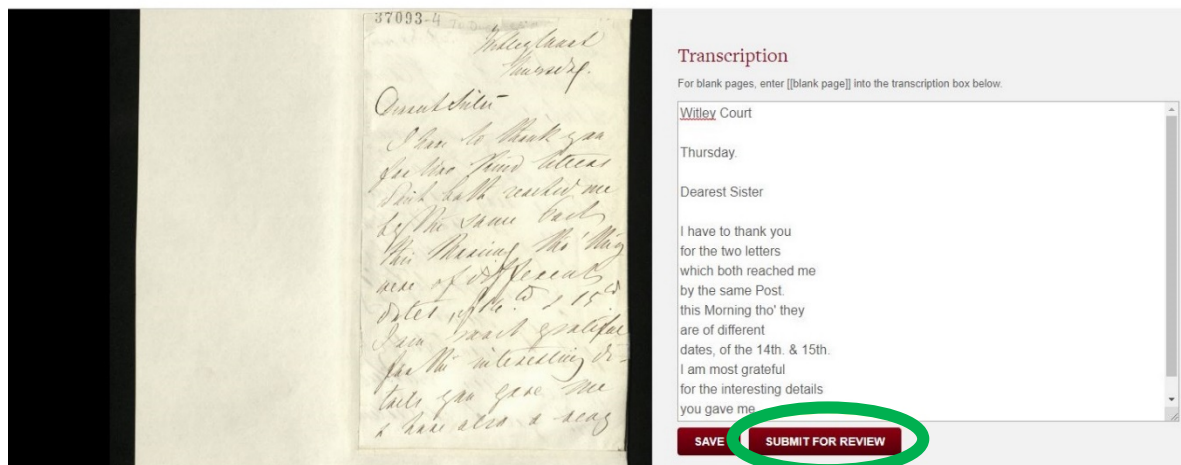 37093-4
Witley Court
Thursday.
Dearest Sister
I have to thank you
for two kind letters
which both reached me
by the same Post
this Morning tho' they
are of different
dates, of the & 15th
I am most grateful
for the interesting de-
tails you gave me
& have also a very
Transcription
For blank pages, enter [[blank page]] into the transcription box below.
Witley Court
Thursday.
Dearest Sister
I have to thank you
for the two letters
which both reached me
by the same Post.
this Morning tho' they
are of different
dates, of the 14th. & 15th.
I am most grateful
for the interesting details
you gave me
SAVE
SUBMIT FOR REVIEW